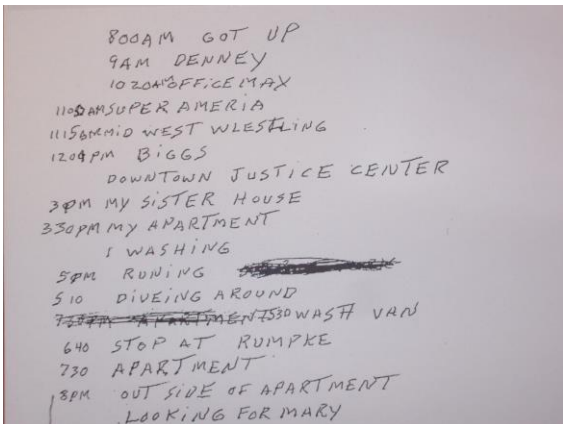 800AM GOT UP
9AM DENNEY
1020AM OFFICEMAX
1100AM SUPER AMERIA
1115AM MID WEST WLESTLING
1204PM BIGGS
DOWNTOWN JUSTICE CENTER
3PM MY SISTER HOUSE
330PM MY APARTMENT
WASHING
5PM RUNING
510 DIVEING AROUND
530 WASH VAN
640 STOP AT RUMPKE
730 APARTMENT
8PM OUT SIDE OF APARTMENT
LOOKING FOR MARY